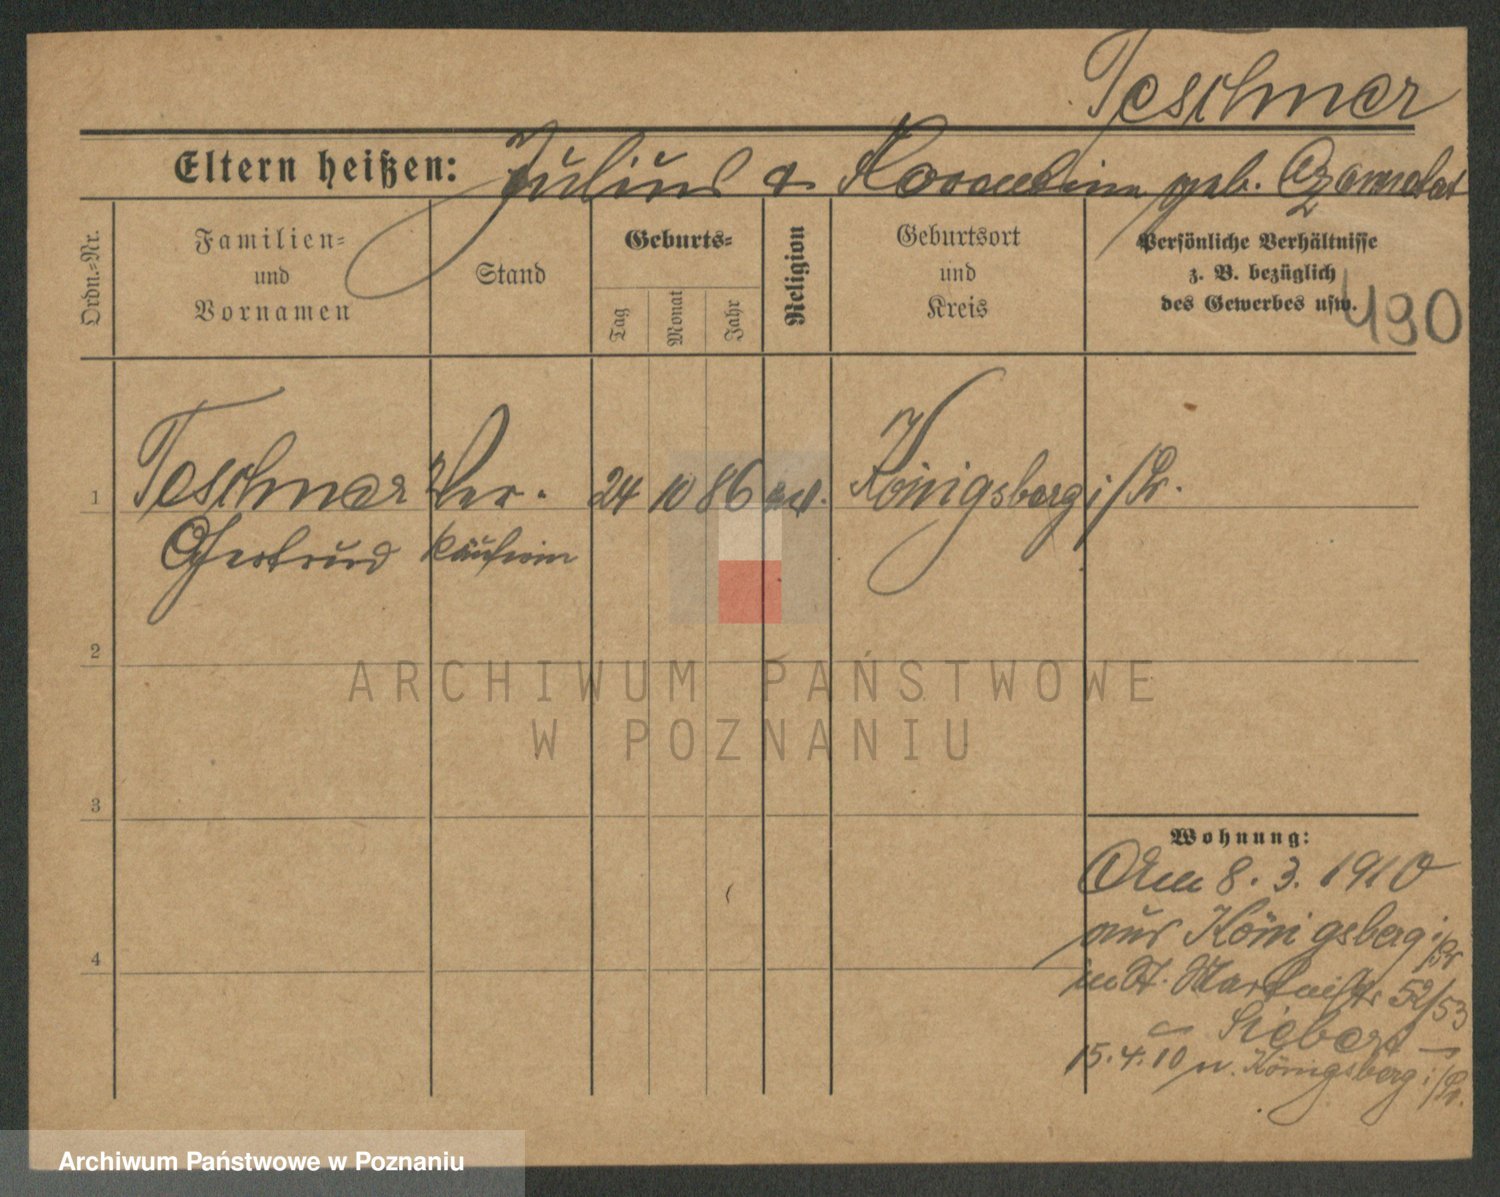 Teschner
Eltern heißen: Julius & geb.
Ordn.-Nr.
Familien-
und
Vornamen
Stand
Geburts-
Tag
Monat
Jahr
Religion
Geburtsort
und
Kreis
Persönliche Verhältnisse
z. B. bezüglich
des Gewerbes usw.
490
1 Teschner Ver- 24 10 86 ev. Königsberg i/Pr.
Gertrud käuferin
2
3
4
ARCHIWUM PAŃSTWOWE
W POZNANIU
Wohnung:
Am 8. 3. 1910
aus Königsberg i/Pr
in St. Martinstr 52/53
Siebert
15. 4. 10 n. Königsberg i/Pr.
Archiwum Państwowe w Poznaniu